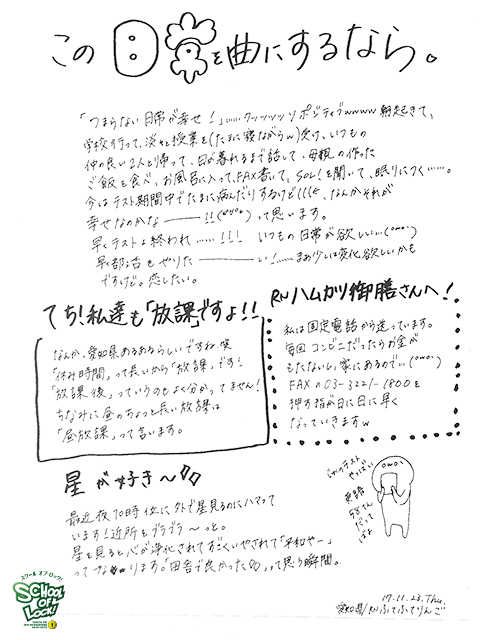 この日常を曲にするなら。
「つまらない日常が幸せ！」……クッッッッソポジティブwwww 朝起きて、
学校行って、淡々と授業を(たまに寝ながらw)受け、いつもの
仲の良い2人と帰って、日が暮れるまで話して、母親の作った
ご飯を食べ、お風呂に入って、FAX書いて、SOL!を聞いて、眠りにつく……。
今はテスト期間中でたまに病んだりするけど(((、なんかそれが
幸せなのかな――!! って思います。
早くテストよ終われ……!!! いつもの日常が欲しい…(^ω^;)
早く部活もやりた――い!……まぁ少しは変化、欲しいかも
ですけど。恋したい。
てち!私達も「放課」ですよ!!
なんか、愛知県あるあるらしいですね、笑
「休み時間」って長いから「放課」です!
「放課後」っていうのもよく分かってません!
ちなみに昼のちょっと長い放課は
「昼放課」って言います。
RN ハムカツ御膳さんへ!
私は固定電話から送っています。
毎回コンビニだったらお金が
もたないし、家にあるので…(^ω^;)
FAXの03-3221-1800を
押す指が日に日に早く
なっていきますw
星が好き〜
最近夜10時位に、外で星見るのにハマって
います!近所をブラブラ〜っと。
星を見ると心が浄化されてすごくいやされて「平和やー」
ってなります。「田舎で良かった」って思う瞬間。
テスト
やばい
英語
58てん
だって
ばよ
17.11.23.Thu.
愛知県/RN ふてふてりんご
スクール オブ ロック!
SCHOOL
OF
LOCK!